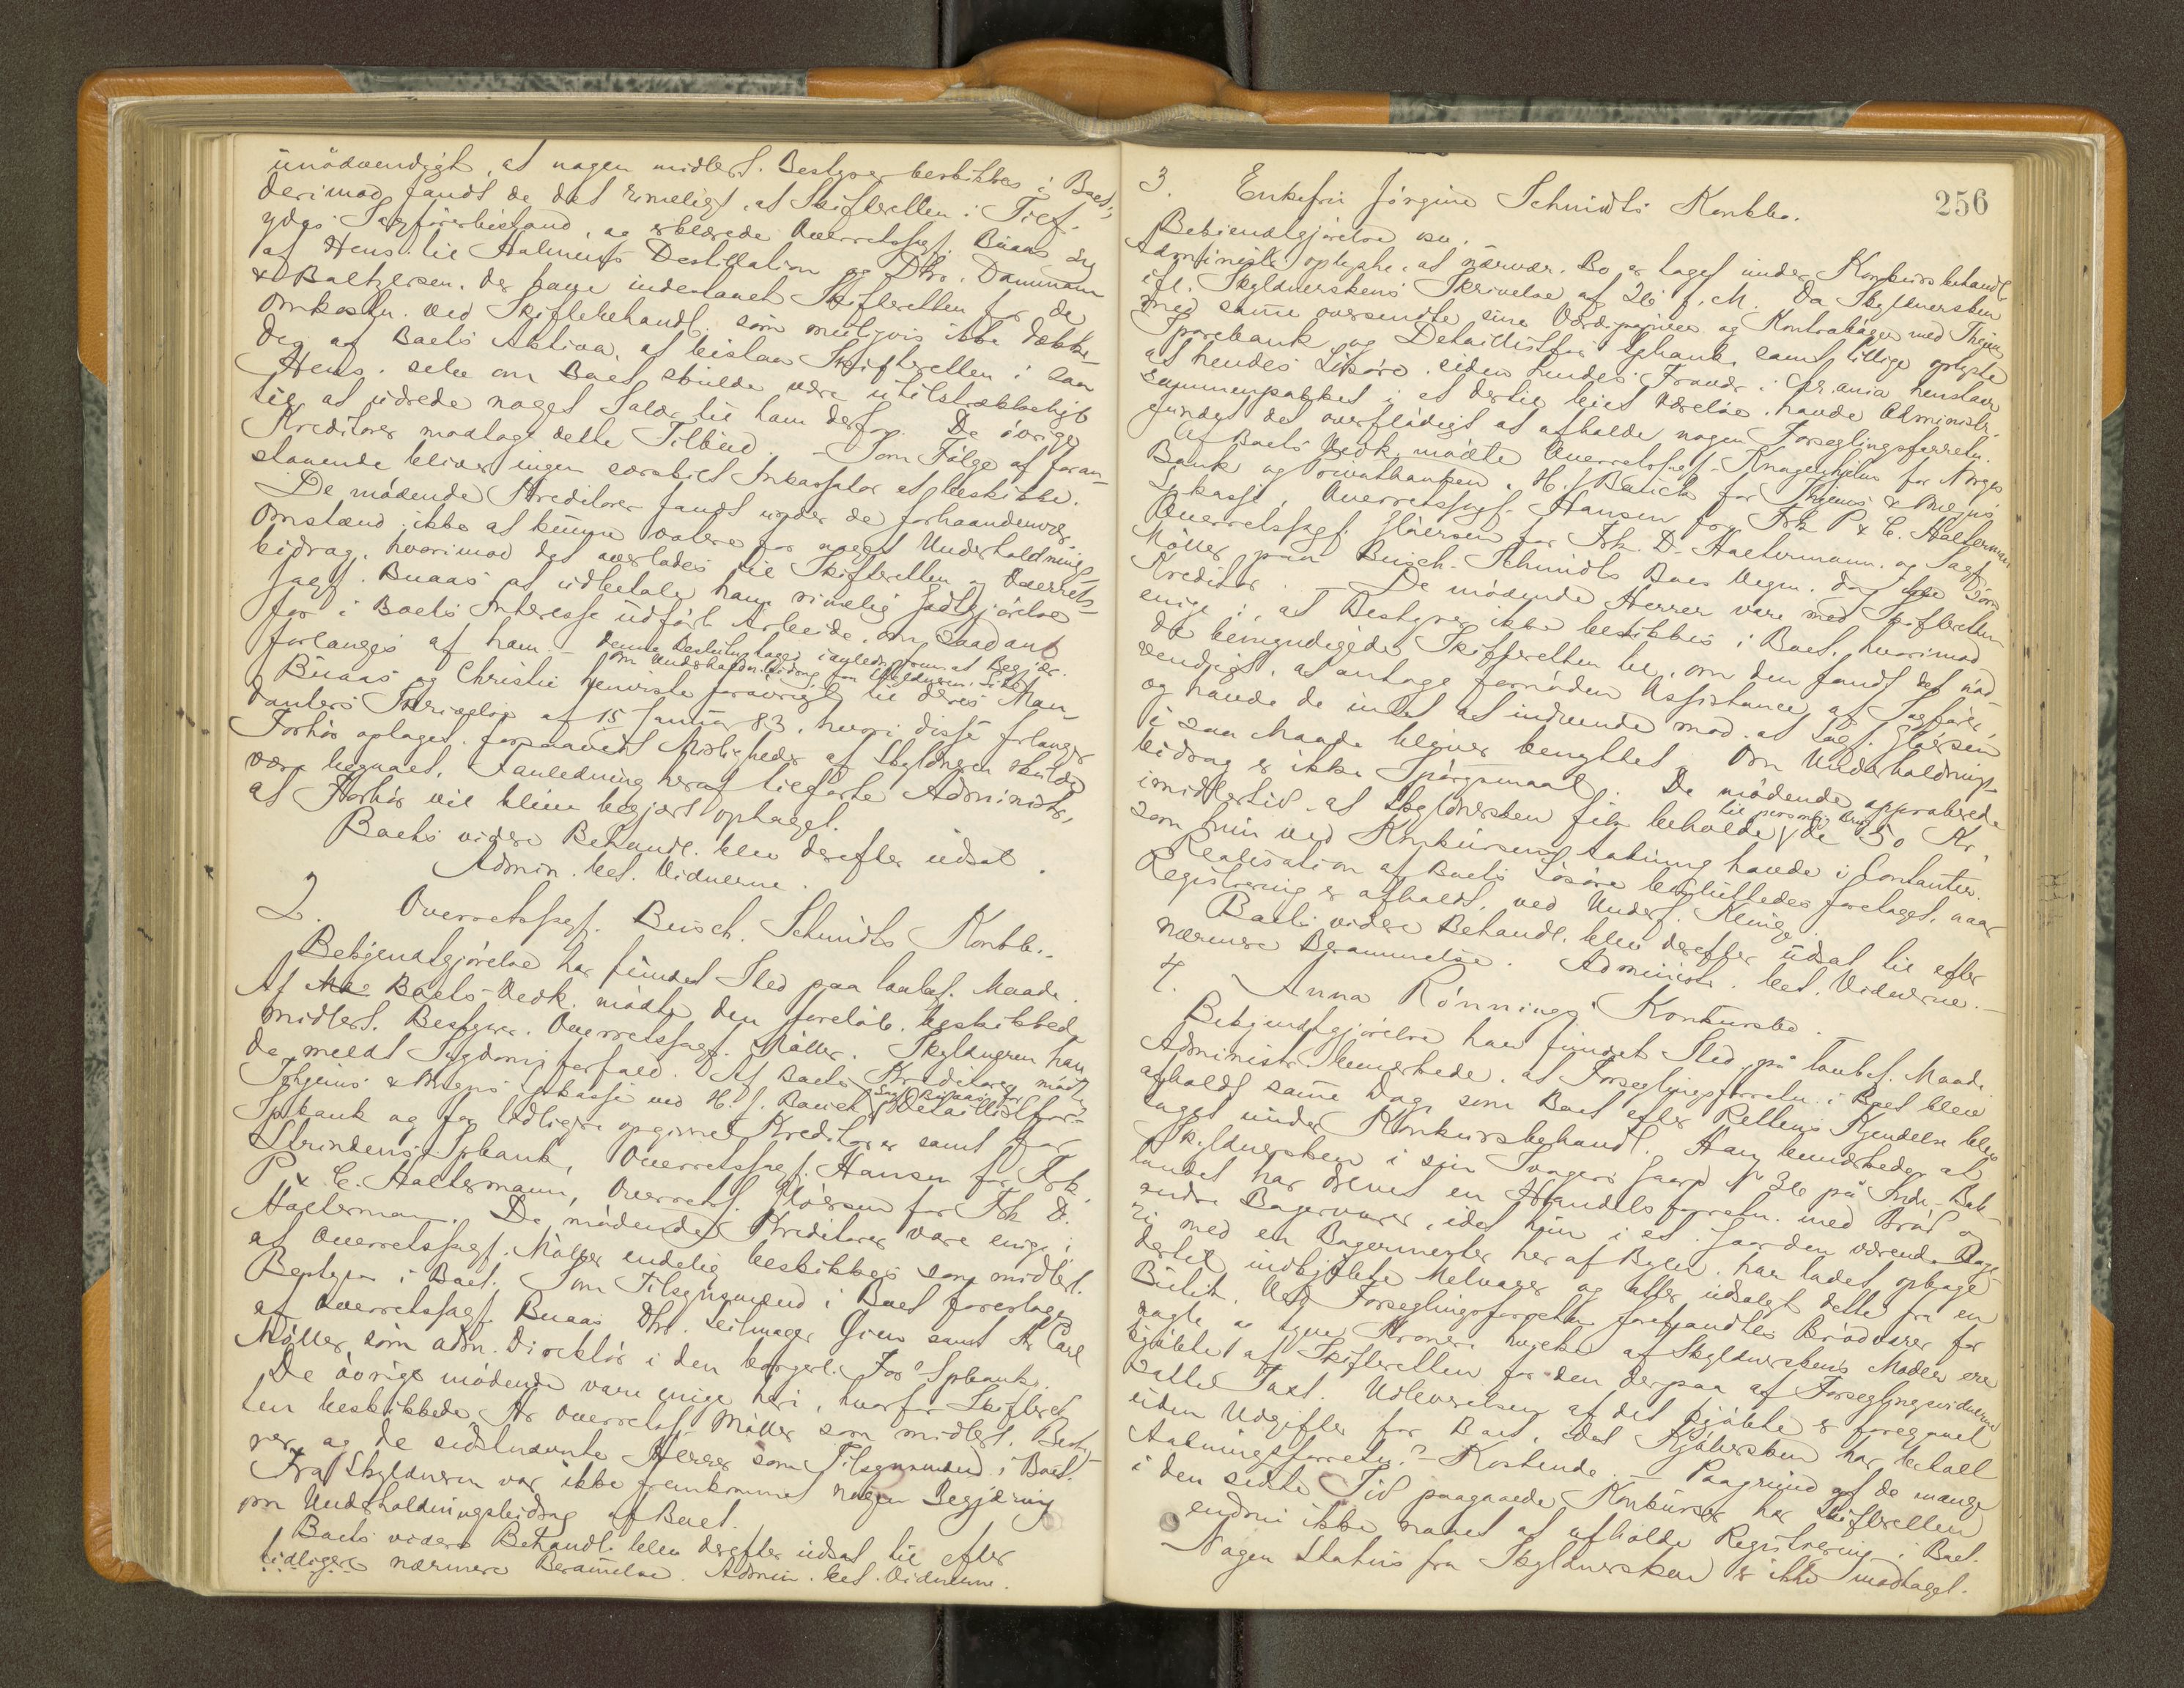 unödvendigt, at nogen midlert. Bestyrer beskikkes i Boet;
derimod fandt de det rimeligt, at Skifteretten i Tilf.
ydes Sagförerbistand, og erklærede Overretssagf. Buaas sig
af Hens. til Aalmens Destillation og Dhr. Dammann
& Baltzersen, der have indestaaet Skifteretten for de
Omkostn. ved Skiftebehandl. som muligvis ikke dække
deg af Boets Aktiva, at bistaa Skifteretten i saa
Hens. selv om Boet skulde være utilstrækkeligt
til at udrede noget Salær til ham derfor. De övrige
Kreditorer modtoge dette Tilbud. - Som Fölge af foran-
staaende bliver ingen særskilt Inkassator at beskikke.
De mödende Kreditorer fandt under de forhaandenvær.
Omstænd. ikke at kunne votere for noget Underholdnings
bidrag, hvorimod det overlodes til Skifteretten og Overrets-
sagf. Buaas at udbetale ham rimelig Godtgjörelse
for i Boets Interesse udfört Arbeide, om saadant
forlanges af ham. - Denne Beslutning toges i anledn. fremsat Begjær.
om Underholdn. bidrag fra Skyldneren. Side
Buaas og Christie henviste forövrigt til deres Man-
danters Skrivelse af 15 Januar 83, hvori disse forlanger
Forhör optaget, forsaavidt Misligheder af Skyldneren skulde
være begaaet. I anledning heraf tilförte Administr.
at Forhör vil blive begjært optaget.
Boets videre Behandl. blev derefter udsat.
Admin. bet. Vidnerne.
2. Overretssagf. Busch. Schmidts Konkb.
Bekjendtgjörelse har fundet Sted paa lovbef. Maade.
Af Boets Vedk. mödte den forelöb. beskikkede
midlert. Bestyrer. Overretssagf. Möller. Skyldneren hav
de meldt Sygdomsforfald. Af Boets Kreditorer mödte
Thjems & Omegns Spkasse ved H. J. Bauck, Sagf. Buaas for Detaillistfor.
Spbank og for tidligere opgivne Kreditorer samt for
Strindens Spbank, Overretssagf. Hansen for Frk.
P & C. Haltermann, Overretsf. Gläersen for Frk D.
Haltermann. De mödende Kreditorer vare enige i
at Overretssagf. Möller endelig beskikkes som midlert.
Bestyrer i Boet. Som Tilsynsmænd i Boet foresloges
af Overretssagf. Buaas Dhr. Seilmager Giew samt Hr Carl
Möller, som adm. Direktör i den borgerl. For.s Spbank.
De övrige mödende vare enige heri, hvorfor Skifteret-
ten beskikkede Hr Overretsf. Möller som midlert. Besty-
rer og de sidstnævnte Herrer som Tilsynsmænd i Boet.
Fra Skyldneren var ikke fremkommet nogen Begjæring
om Underholdningsbidrag af Boet.
Boets videre Behandl. blev derefter udsat til efter
tidligere nærmere Berammelse. Admin. bet. Vidnerne.
256
3. Enkefru Jörgine Schmidts Konkbo.
Bekjendtgjörelse osv.
Administr. oplyste, at nærvær. Bo er taget under Konkursbehandl.
ifl. Skyldnerskens Skrivelse af 26 f. M. Da Skyldnersken
med samme oversendte sine Værdipapirer og Kontraböger med Thjems
Sparebank og Detaillistfor. Spbank, samt tillige oplyste
at hendes Lösöre siden hendes Fravær i Chr.ania henstaar
sammenpakket i et dertil leiet Værelse, havde Administr.
fundet det overflödigt at afholde nogen Forseglingsforretn.
Af Boets Vedk. mödte Overretssagf. Knagenhjelm for Norges
Bank og Privatbanken, H. J. Bauck for Thjems & Omegns
Spkasse, Overretssagf. Hansen for Frk P & C. Halterman
Overretssagf. Gläersen for Frk. D. Haltermann og Sagförer
Möller paa Busch-Schmidts Boes Vegne, dog ikke som
Kreditor. - De mödende Herrer vare med Skifteretten
enige i, at Bestyrer ikke beskikkes i Boet, hvorimod
de bemyndigede Skifteretten til, om den fandt det nöd-
vendigt, at antage fornöden Assistance af Sagförer,
og havde de intet at indvende mod, at Sagf. Gläersen
i saa Maade bliver benyttet. Om Underholdnings-
bidrag er ikke Spörgsmaal. De mödende approberede
imidlertid, at Skyldnersken fik beholde til personlig Brug de 50 Kr.
som hun ved Konkursens Aabning havde i Contanter.
Realisation af Boets Lösöre besluttedes foretaget, naar
Registrering er afholdt, ved Underf. Klinge.
Boets videre Behandl. blev derefter udsat til efter
nærmere Berammelse. Administr. bet. Vidnerne. -
4. Anna Rönnings Konkursbo.
Bekjendtgjörelse har fundet Sted på lovbef. Maade.
Administr. bemærkede, at Forseglingsforretn. i Boet blev
afholdt samme Dag som Boet efter Rettens Kjendelse blev
taget under Konkursbehandl. Han bemærkede, at
Skyldnersken i sin Svogers Gaard No 36 på Indr. Bak-
landet har drevet en Handelsforretn. med Bröd og
andre Bagervarer, idet hun i et i Gaarden værende Bage-
ri med en Bagermester her af Byen har ladet opbage
dertil indkjöbte Melvarer og atter udsolgt dette fra en
Butik. Ved Forseglingsforretn. forefandtes Brödvarer for
nogle og tyve Kroner, hvilke af Skyldnerskens Moder ere
kjöbte af Skifteretten for den derpaa af Forseglingsvidnerne
satte Taxt. Udleverelsen af det kjöbte er foregaaet
uden Udgifter for Boet, idet Kjöbersken har betalt
Aabningsforretn.s Kostende. - Paagrund af de mange
i den sidste Tid paagaaede Konkurser har Skifteretten
endnu ikke naaet at afholde Registrering i Boet.
Nogen Status fra Skyldnersken er ikke modtaget.